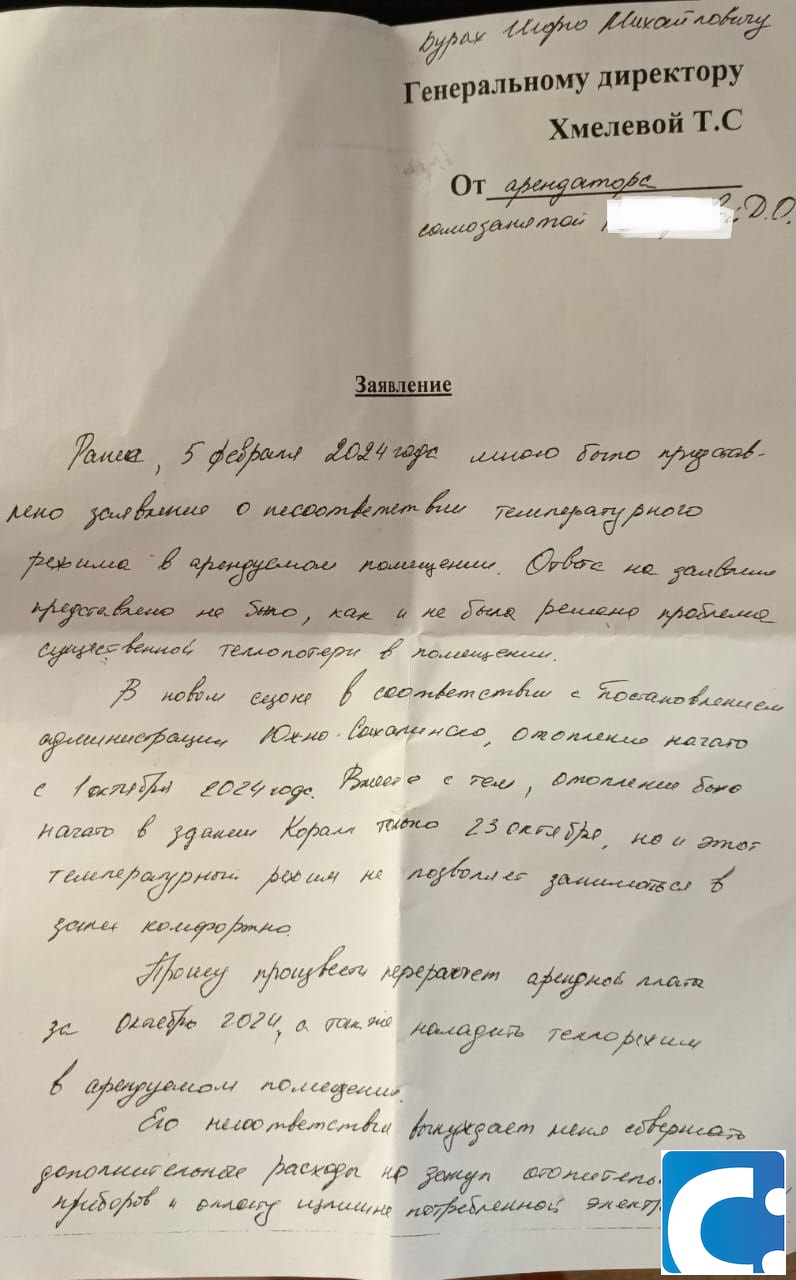 Бурах Михайловичу
Генеральному директору
Хмелевой Т.С
От арендатора
самозанятой Д.О.
Заявление
Ранее, 5 февраля 2024 года мною было представ-
лено заявление о несоответствии температурного
режима в арендуемом помещении. Ответа на заявление
представлено не было, как и не была решена проблема
существенной теплопотери в помещении.
В новом сезоне в соответствии с Постановлением
администрации Южно-Сахалинска, отопление начато
с 1 октября 2024 года. Вместе с тем, отопление было
начато в здании Коралл только 23 октября, но и этот
температурный режим не позволяет заниматься в
зале комфортно.
Прошу произвести перерасчет арендной платы
за октябрь 2024, а также наладить теплорежим
в арендуемом помещении.
Его несоответствия вынуждает меня совершать
дополнительные расходы на закуп отопитель
приборов и оплату излишне потребленной элект